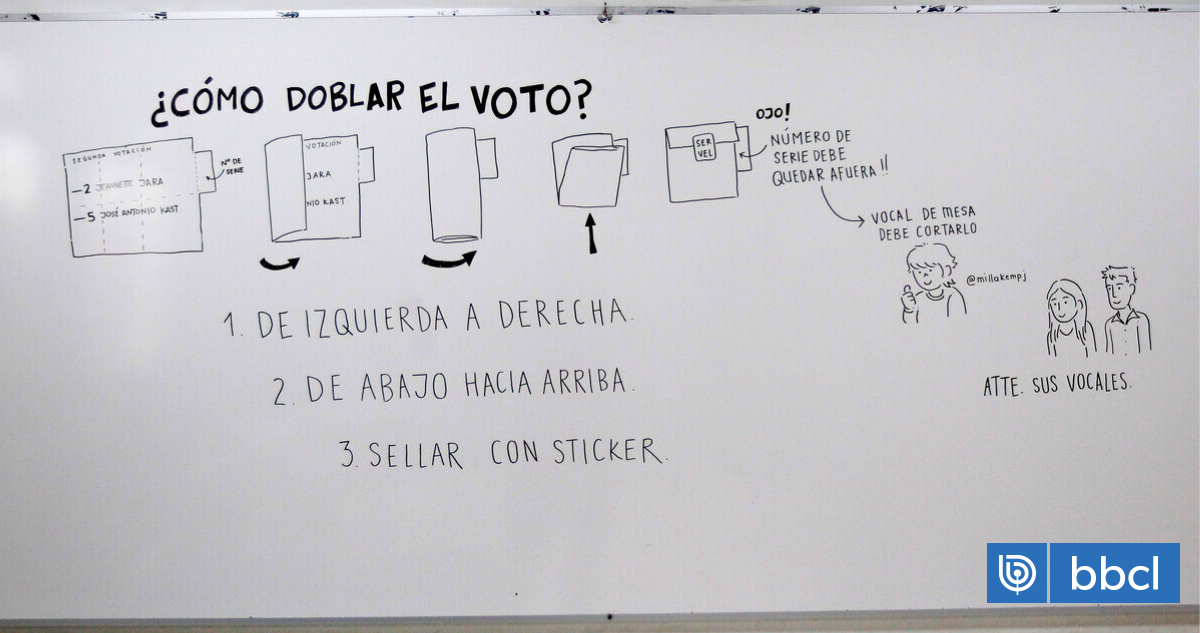 ¿CÓMO DOBLAR EL VOTO?
SEGUNDA VOTACIÓN
—2 JEANNETTE JARA
—5 JOSÉ ANTONIO KAST
Nº DE
SERIE
VOTACIÓN
JARA
NIO KAST
SER
VEL
OJO!
NÚMERO DE
SERIE DEBE
QUEDAR AFUERA!!
VOCAL DE MESA
DEBE CORTARLO
@millakempj
1. DE IZQUIERDA A DERECHA.
2. DE ABAJO HACIA ARRIBA.
3. SELLAR CON STICKER.
ATTE. SUS VOCALES.
bbcl